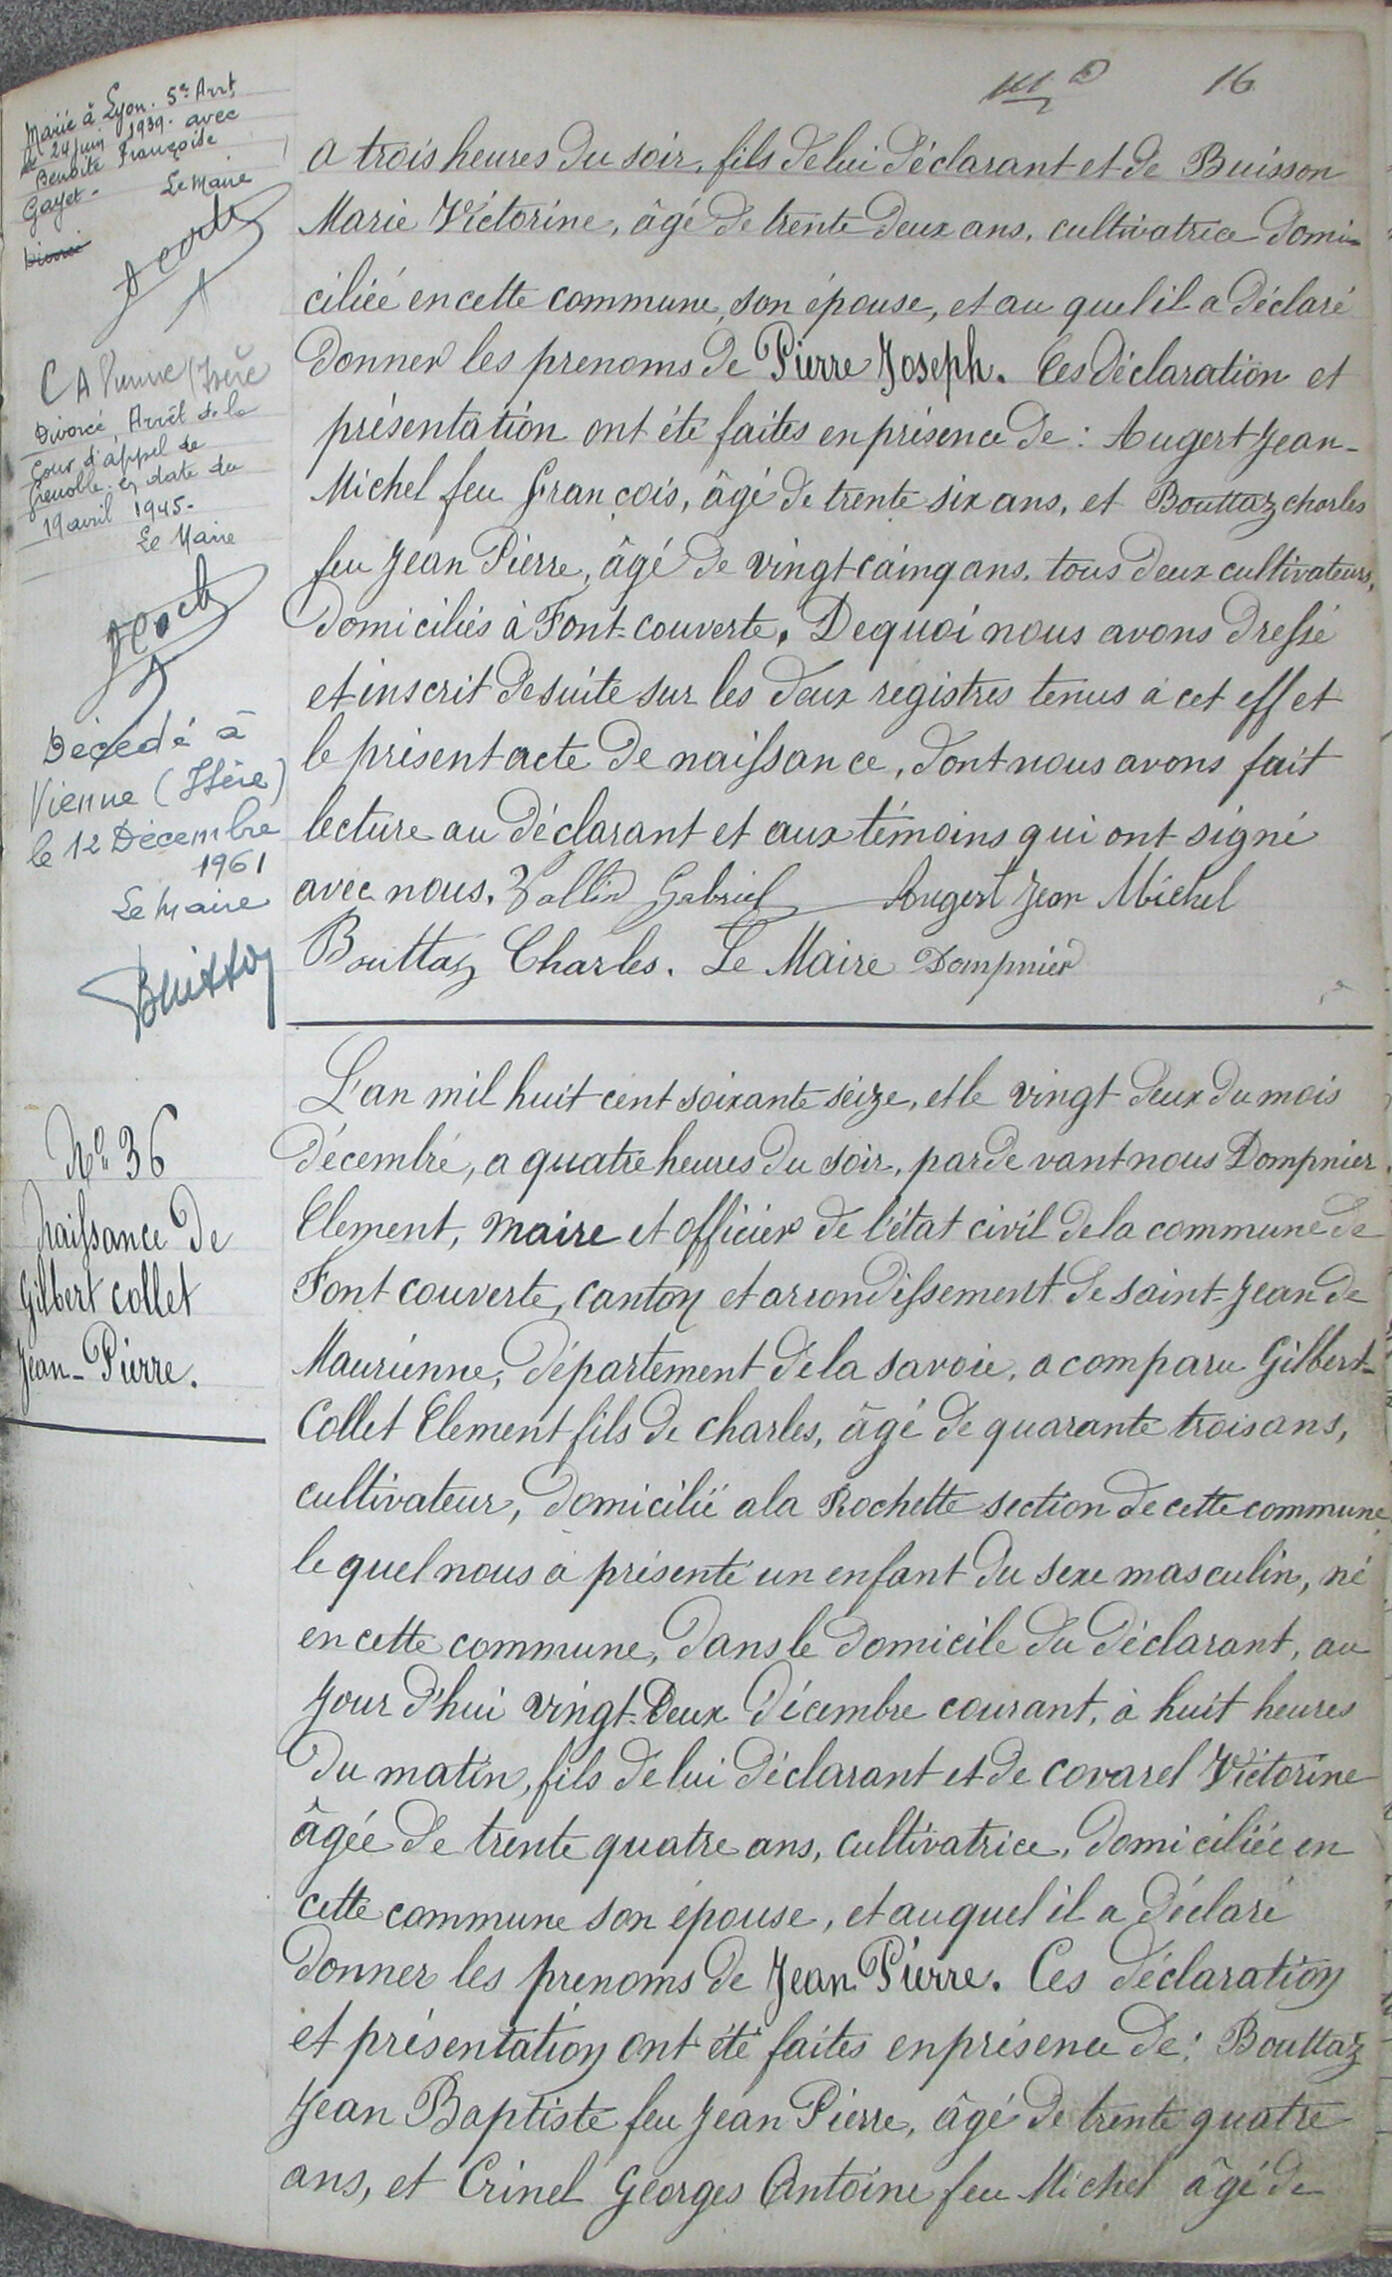 16
Marié à Lyon. 5e Arrt
le 24 juin 1939. avec
Benoite Françoise
Gayet. Le Maire
Divorcé
C A Vienne (Isère
Divorcé Arrêt de la
Cour d'appel de
Grenoble. en date du
19 avril 1945.
Le Maire
Décédé à
Vienne (Isère)
le 12 Décembre
1961
Le Maire
Buisson
a trois heures du soir, fils de lui déclarant et de Buisson
Marie Victorine, âgé de trente deux ans, cultivatrice domi-
ciliée en cette commune, son épouse, et au quel il a déclaré
donner les prenoms de Pierre Joseph. Ces déclaration et
présentation ont été faites en présence de : Augert Jean-
Michel feu François, âgé de trente six ans, et Bouttaz charles
feu Jean Pierre, âgé de vingt-cainq ans. tous deux cultivateurs,
domiciliés à Font-couverte. De quoi nous avons dressé
et inscrit de suite sur les deux registres tenus a cet effet
le présent acte de naissance, dont nous avons fait
lecture au déclarant et aux témoins qui ont signé
avec nous. Vallin Gabriel Augert Jean Michel
Bouttaz Charles. Le Maire Dompnier
No 36
Naissance de
Gilbert collet
Jean-Pierre.
L'an mil huit cent soixante seize, et le vingt deux du mois
décembre, a quatre heures du soir, par de vant nous Dompnier
Clement, maire et officier de l'état civil de la commune de
Font couverte, canton et arrondissement de saint-Jean de
Maurienne, département de la savoie, a comparu Gilbert-
Collet Clement fils de charles, âgé de quarante trois ans,
cultivateur, domicilié a la Rochette section de cette commune,
le quel nous a présenté un enfant du sexe masculin, né
en cette commune, dans le domicile du déclarant, au
jour d'hui vingt-deux décembre courant, à huit heures
du matin, fils de lui déclarant et de covarel Victorine
âgée de trente quatre ans, cultivatrice, domiciliée en
cette commune son épouse, et auquel il a déclaré
donner les prenoms de Jean Pierre. Ces déclaration
et présentation ont été faites en présence de : Bouttaz
Jean Baptiste feu Jean Pierre, âgé de trente quatre
ans, et Crinel Georges Antoine feu Michel âgé de